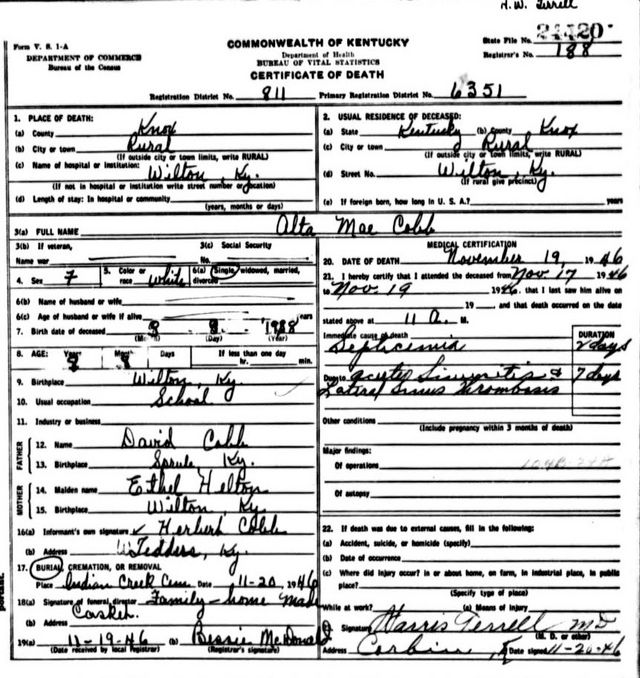 H.W. Terrell
Form V. S. 1-A
DEPARTMENT OF COMMERCE
Bureau of the Census
COMMONWEALTH OF KENTUCKY
Department of Health
BUREAU OF VITAL STATISTICS
CERTIFICATE OF DEATH
State File No. 24420
Registrar's No. 188
Registration District No. 811 Primary Registration District No. 6351
1. PLACE OF DEATH:
(a) County Knox
(b) City or town Rural
(If outside city or town limits, write RURAL)
(c) Name of hospital or institution:
Wilton, Ky.
(If not in hospital or institution write street number or location)
(d) Length of stay: In hospital or community
(years, months or days)
2. USUAL RESIDENCE OF DECEASED:
(a) State Kentucky (b) County Knox
(c) City or town Rural
(If outside city or town limits, write RURAL)
(d) Street No. Wilton, Ky.
(If rural give precinct)
(e) If foreign born, how long in U. S. A.? years
3(a) FULL NAME Alta Mae Cobb
3(b) If veteran,
Name war
3(c) Social Security
No.
4. Sex F 5. Color or race White 6(a) Single, widowed, married, divorced
6(b) Name of husband or wife
6(c) Age of husband or wife if alive years
7. Birth date of deceased
(Month) (Day) (Year)
8. AGE: Years Months Days If less than one day
8 hr. min.
9. Birthplace Wilton, Ky.
10. Usual occupation School
11. Industry or business
FATHER
12. Name David Cobb
13. Birthplace Sprule Ky.
MOTHER
14. Maiden name Ethel Helton
15. Birthplace Wilton, Ky.
16(a) Informant's own signature Herbert Cobb
(b) Address Tedders, Ky.
17. BURIAL, CREMATION, OR REMOVAL
Place Indian Creek Cem. Date 11-20 1946
18(a) Signature of funeral director Family - home made
Casket
(b) Address
19(a) 11-19-46 (b) Bessie McDonald
(Date received by local Registrar) (Registrar's signature)
MEDICAL CERTIFICATION
20. DATE OF DEATH November 19, 1946
21. I hereby certify that I attended the deceased from Nov 17 1946
to Nov 19 1946, that I last saw him alive on
19 and that death occurred on the date
stated above at 11 A. M.
Immediate cause of death DURATION
Septicemia 2 days
Due to acute Sinusitis & 7 days
Lateral Sinus Thrombosis
Other conditions
(Include pregnancy within 3 months of death)
Major findings:
Of operations
Of autopsy
22. If death was due to external causes, fill in the following:
(a) Accident, suicide, or homicide (specify)
(b) Date of occurrence
(c) Where did injury occur? in or about home, on farm, in industrial place, in public
place?
(Specify type of place)
While at work? (e) Means of injury
Signature Harris Terrell MD
(M. D. or other)
Address Corbin, K Date signed 11-20-46